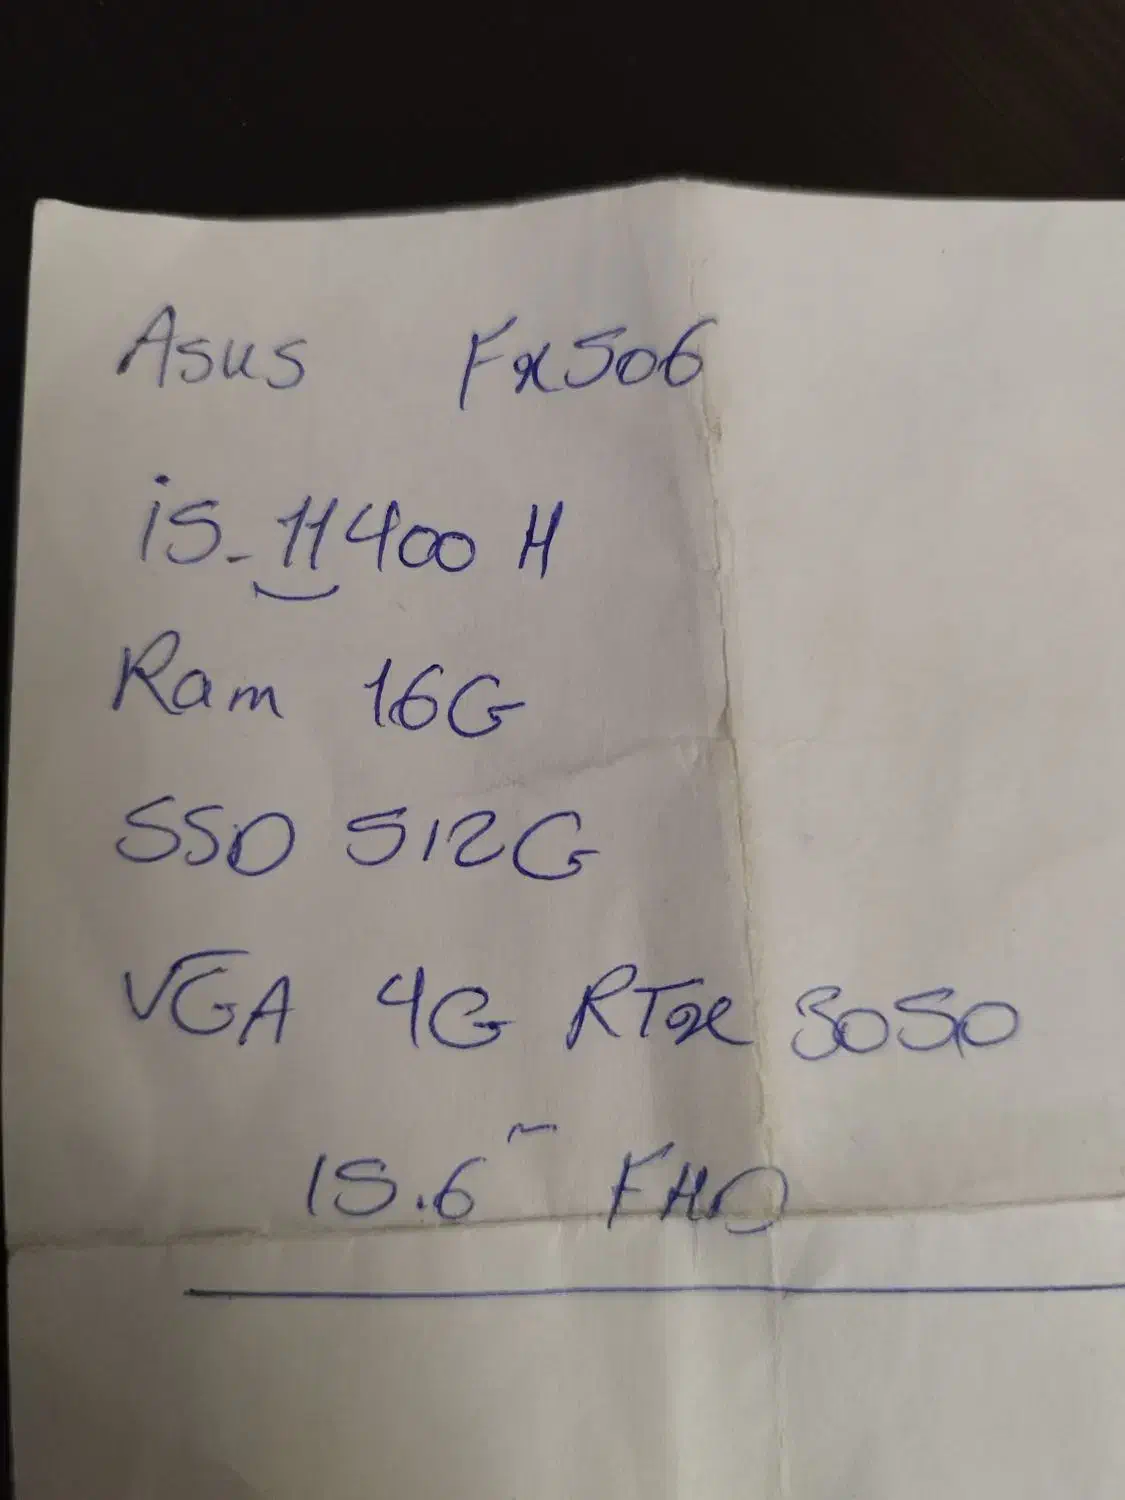 Asus Fx506
i5-11400 H
Ram 16G
SSD 512G
VGA 4G RTx 3050
15.6~ FHD